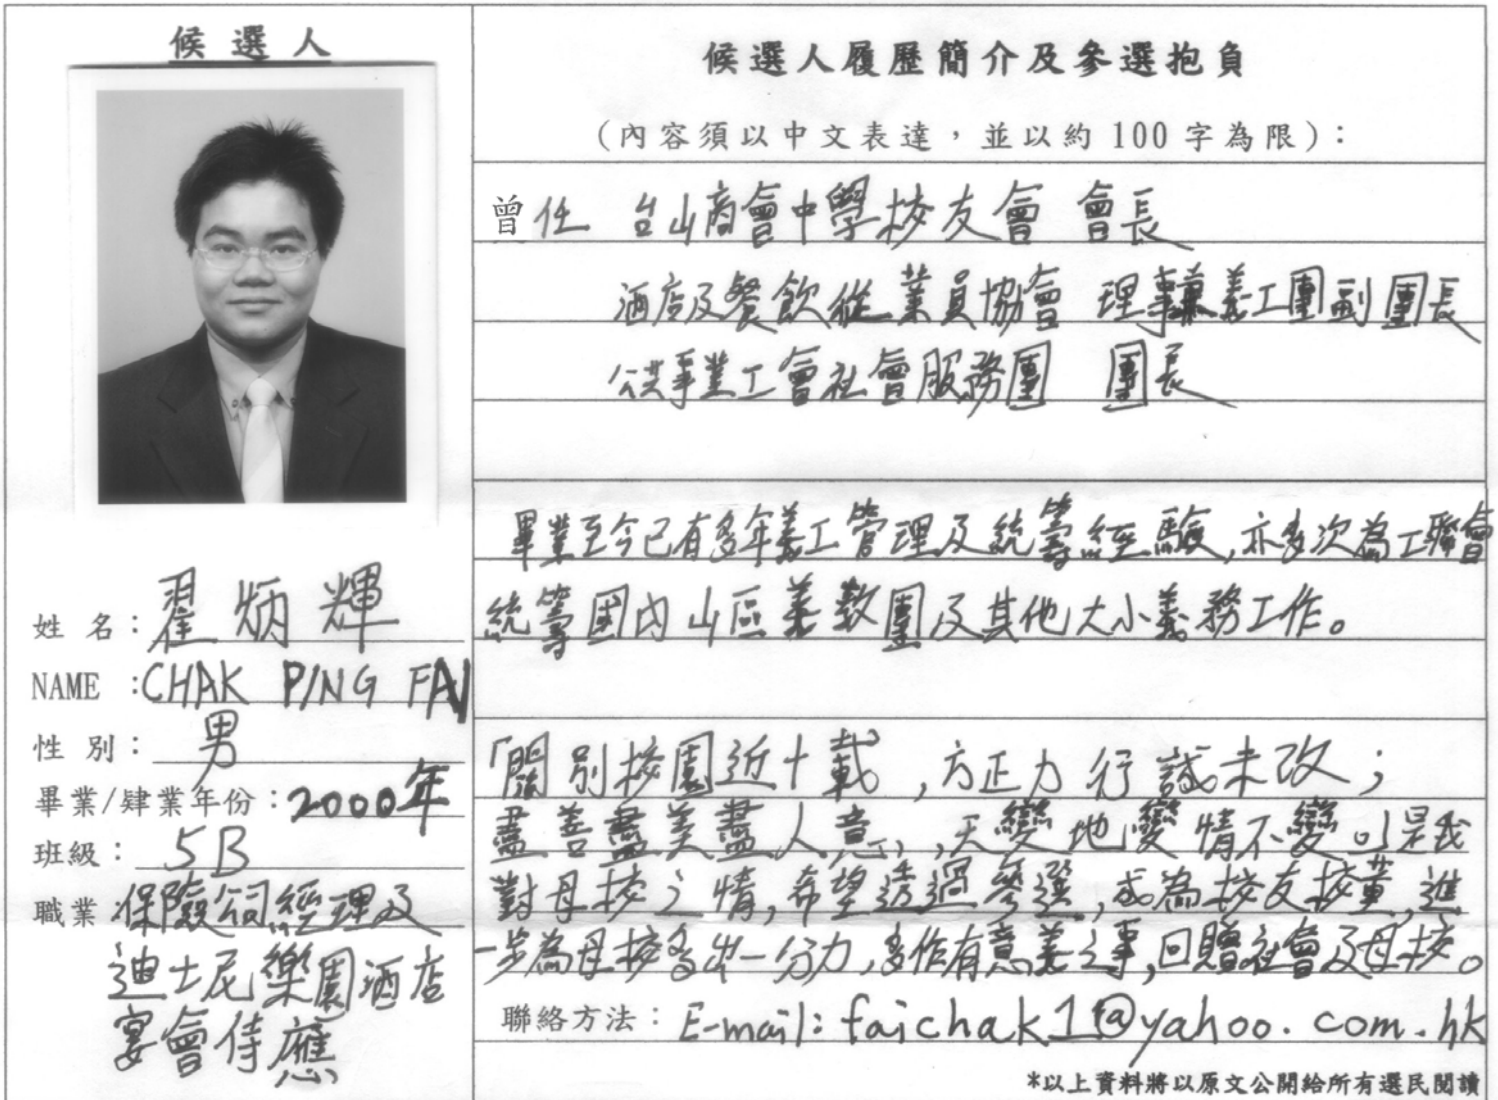 候選人
姓名：翟炳輝
NAME :CHAK PING FAI
性別：男
畢業/肄業年份：2000年
班級：5B
職業 保險公司經理及
迪士尼樂園酒店
宴會侍應
候選人履歷簡介及參選抱負
(內容須以中文表達，並以約100字為限)：
曾任 台山商會中學校友會 會長
酒店及餐飲從業員協會 理事兼義工團副團長
公共事業工會社會服務團 團長
畢業至今已有多年義工管理及統籌經驗,亦多次為工聯會
統籌國內山區義教團及其他大小義務工作。
「闊別校園近十載,方正力行誠未改；
盡善盡美盡人意,天變地變情不變。」是我
對母校之情,希望透過參選,成為校友校董,進
一步為母校多出一分力,多作有意義之事,回贈社會及母校。
聯絡方法：E-mail: faichak1@yahoo.com.hk
*以上資料將以原文公開給所有選民閱讀